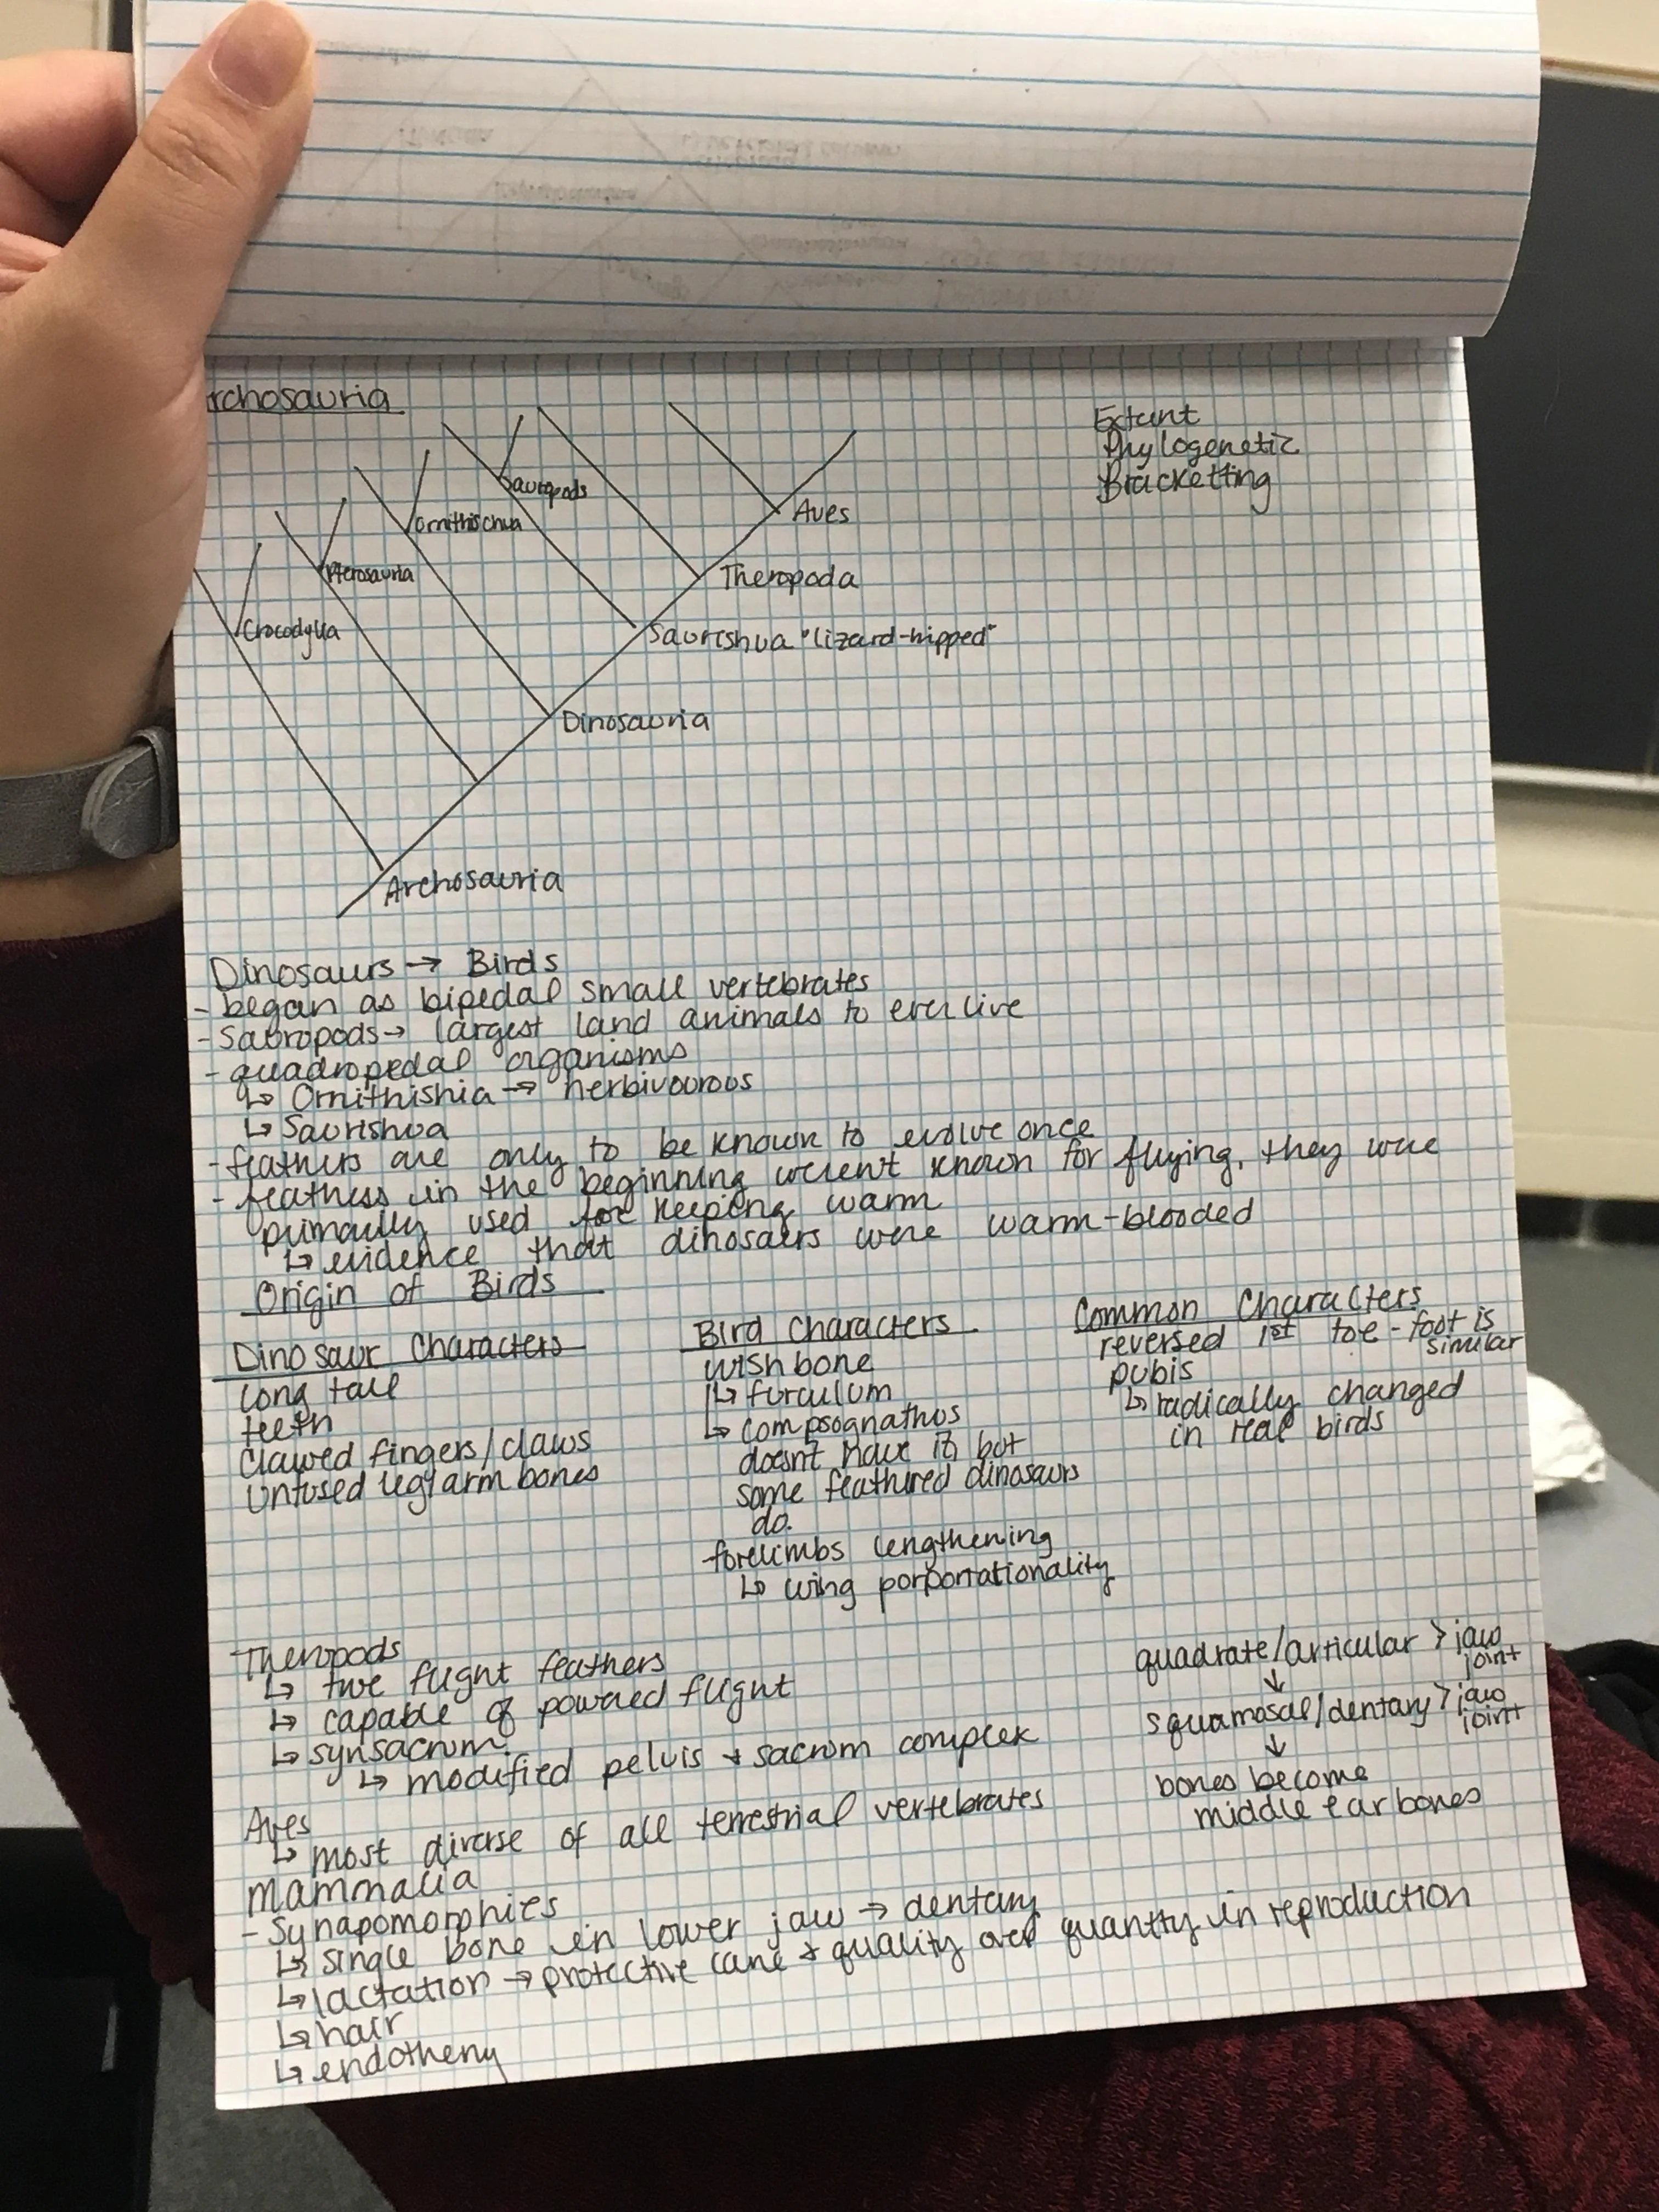 rchosauria
Extant
Phylogenetic
Bracketting
Sauropods
Ornithischua
Aves
Pterosauria
Theropoda
Crocodylia
Saurishua "lizard-hipped"
Dinosauria
Archosauria
Dinosaurs → Birds
- began as bipedal small vertebrates
- Sauropods → largest land animals to ever live
- quadropedal organisms
↳ Ornithishia → herbivourous
↳ Saurishua
- feathers are only to be known to evolve once
- feathers in the beginning weren't known for flying, they were
primarily used for keeping warm
↳ evidence that dinosaurs were warm-blooded
Origin of Birds
Dinosaur Characters
long tail
teeth
Clawed fingers/claws
Unfused leg/arm bones
Bird Characters
wishbone
↳ furculum
↳ compsognathus
doesn't have it but
some feathered dinosaurs
do.
forelimbs lengthening
↳ wing porportationality
Common Characters
reversed 1st toe - foot is
similar
pubis
↳ radically changed
in real birds
Theropods
↳ true flight feathers
↳ capable of powered flight
↳ synsacrum
↳ modified pelvis + sacrum complex
quadrate/articular > jaw
joint
↓
squamosal/dentary > jaw
joint
↓
bones become
middle ear bones
Aves
↳ most diverse of all terrestrial vertebrates
Mammalia
- Synapomorphies
↳ single bone in lower jaw → dentary
↳ lactation → protective care + quality over quantity in reproduction
↳ hair
↳ endothemy